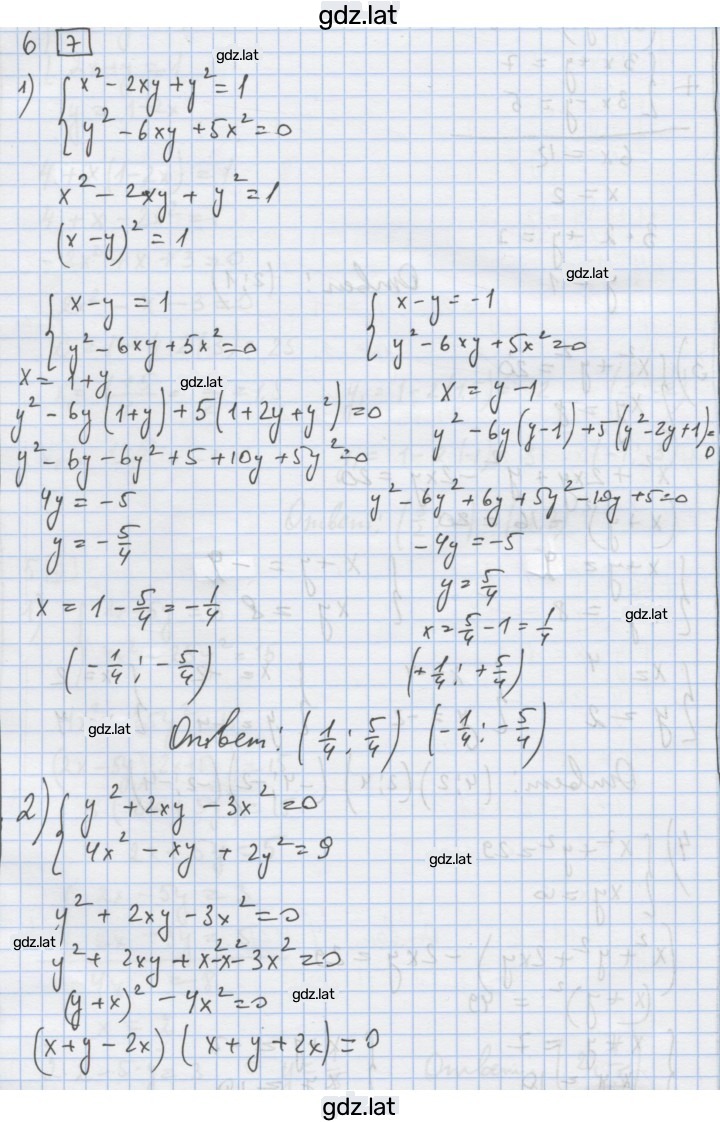 gdz.lat
6 7
gdz.lat
1) { x² - 2xy + y² = 1
y² - 6xy + 5x² = 0
x² - 2xy + y² = 1
(x - y)² = 1
gdz.lat
{ x - y = 1
y² - 6xy + 5x² = 0
x = 1 + y
gdz.lat
y² - 6y(1+y) + 5(1+2y+y²) = 0
y² - 6y - 6y² + 5 + 10y + 5y² = 0
4y = -5
y = -5/4
x = 1 - 5/4 = -1/4
(-1/4; -5/4)
{ x - y = -1
y² - 6xy + 5x² = 0
x = y - 1
y² - 6y(y-1) + 5(y² - 2y + 1) = 0
y² - 6y² + 6y + 5y² - 10y + 5 = 0
-4y = -5
y = 5/4
gdz.lat
x = 5/4 - 1 = 1/4
(+1/4; +5/4)
gdz.lat
Ответ: (1/4; 5/4) (-1/4; -5/4)
2) { y² + 2xy - 3x² = 0
4x² - xy + 2y² = 9
gdz.lat
y² + 2xy - 3x² = 0
gdz.lat
y² + 2xy + x² - x² - 3x² = 0
(y + x)² - 4x² = 0
gdz.lat
(x + y - 2x) (x + y + 2x) = 0
gdz.lat